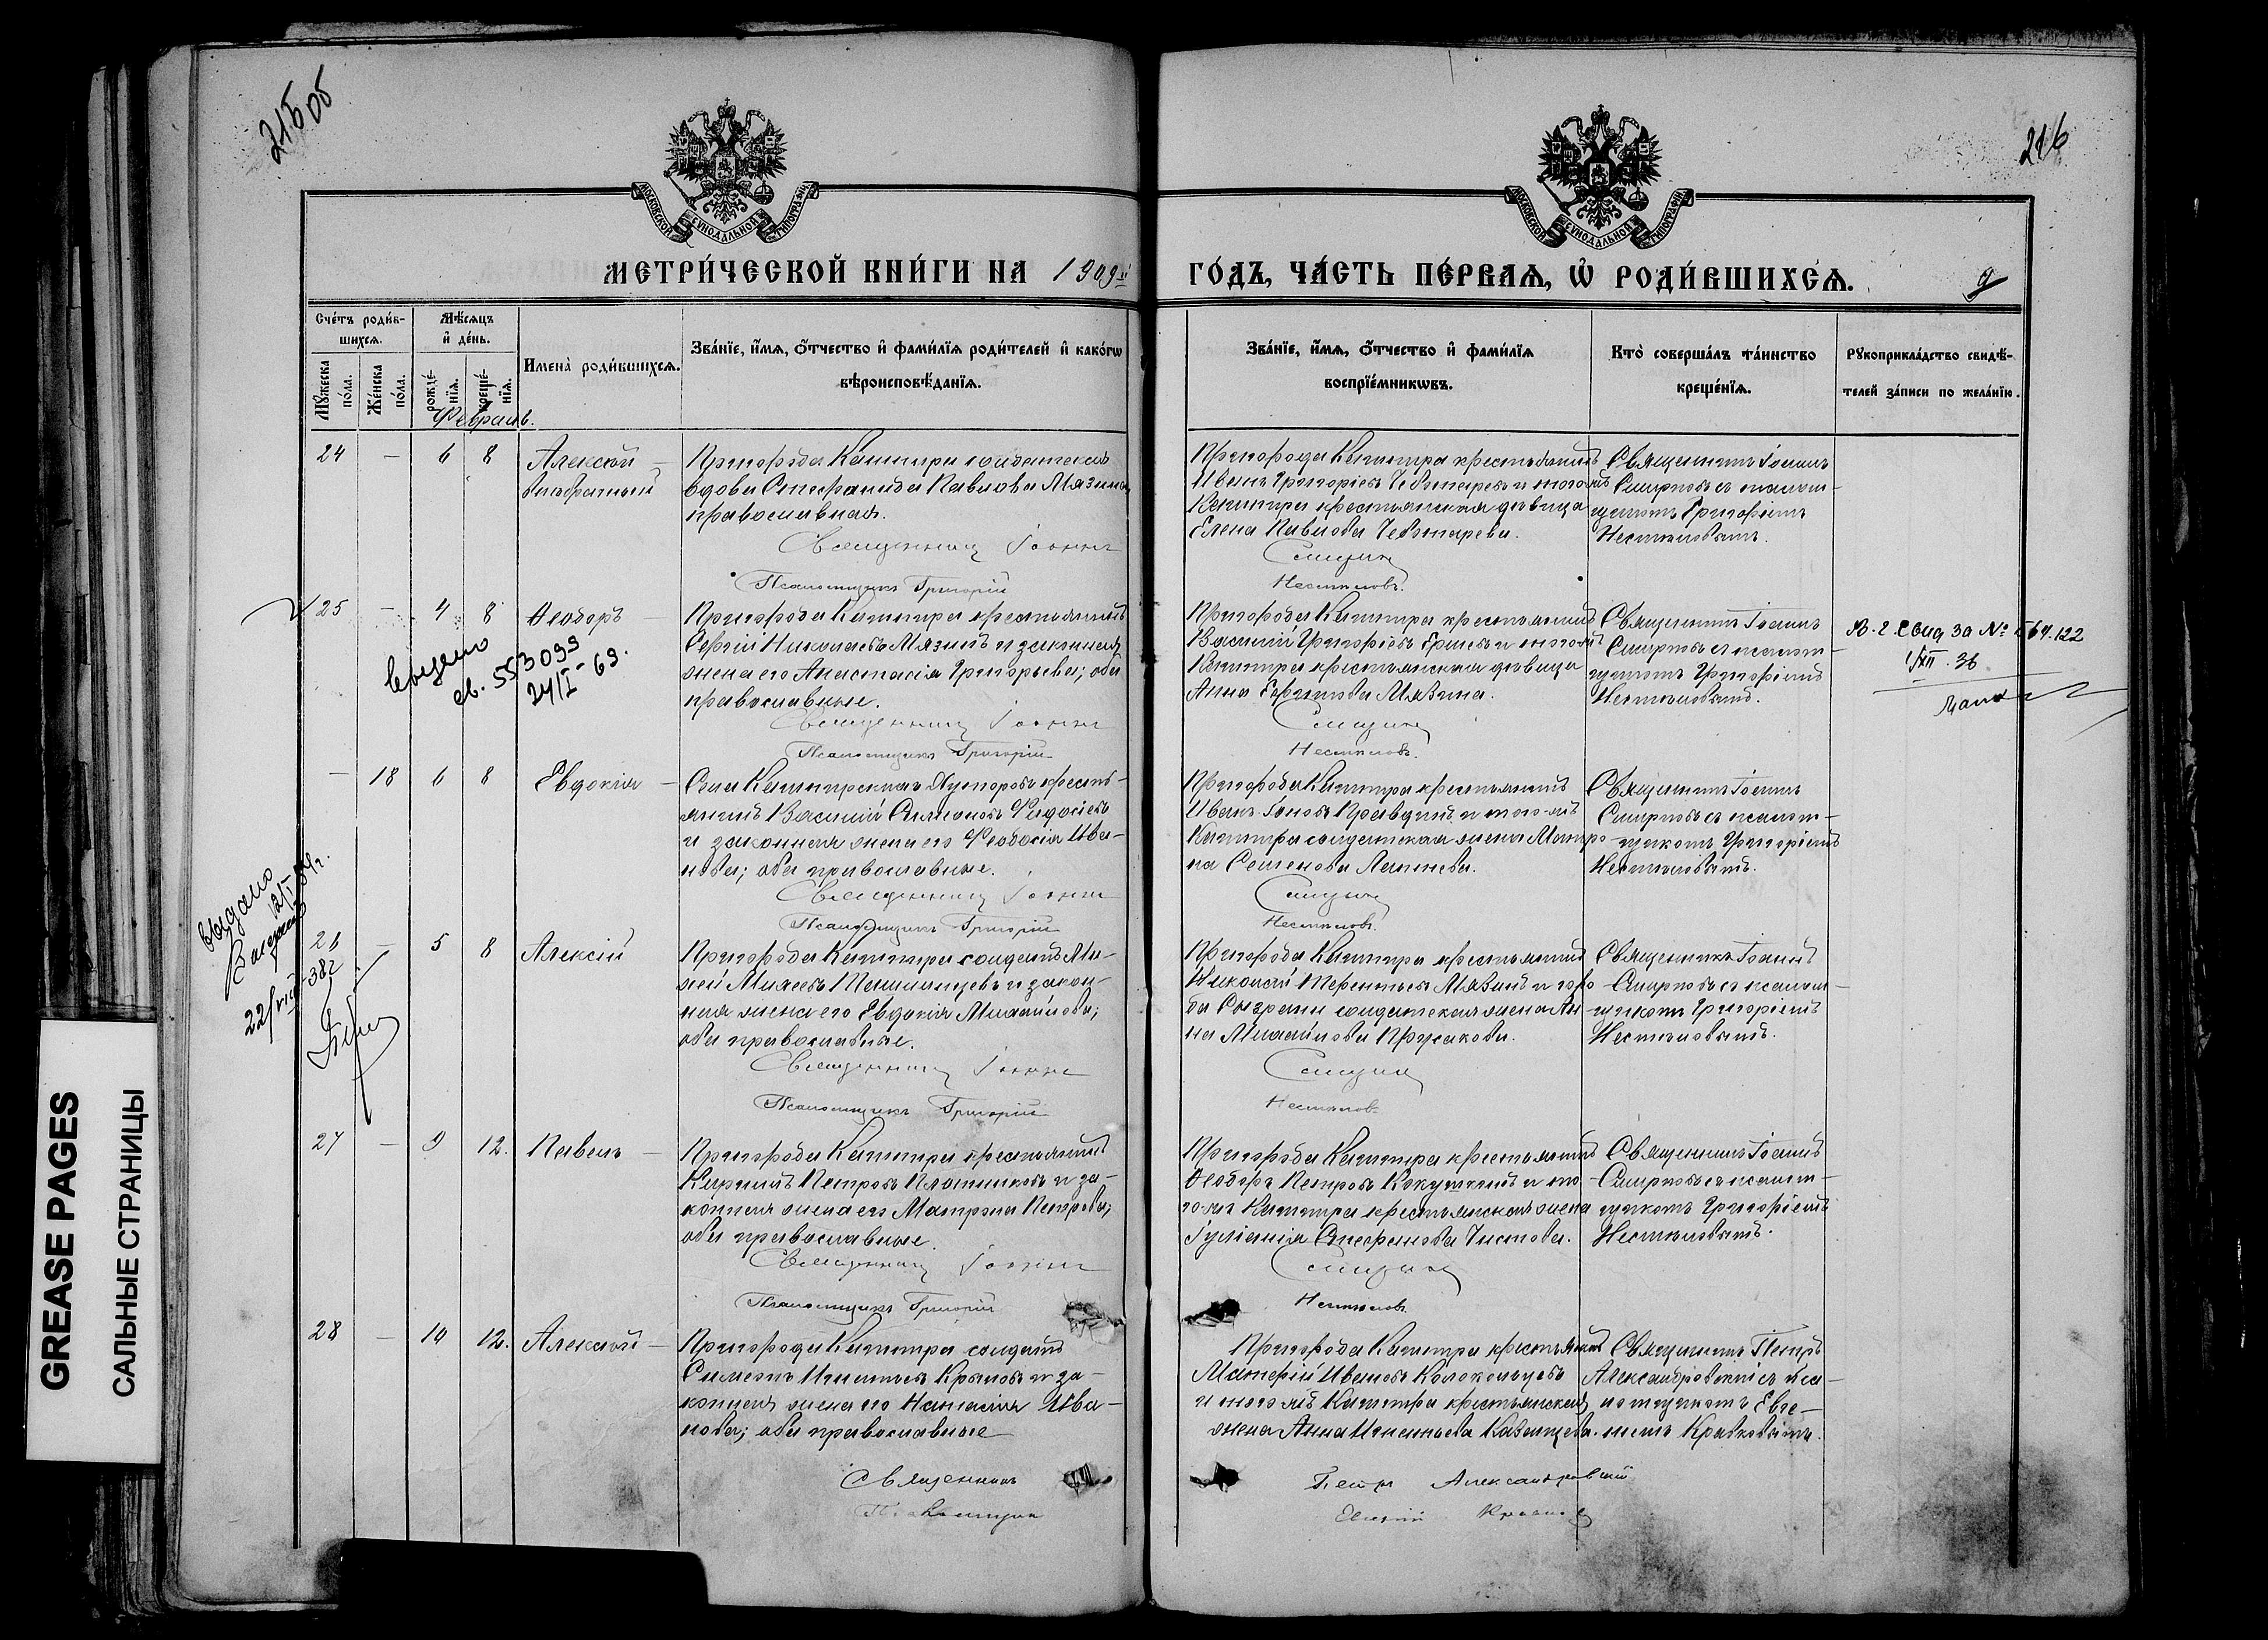 215 об
216
МОСКОВСКОЙ СУНОДАЛЬНОЙ ТИПОГРАФІИ
МОСКОВСКОЙ СУНОДАЛЬНОЙ ТИПОГРАФІИ
МЕТРИ́ЧЕСКОЙ КНИ́ГИ НА 1909й
ГО́ДЪ, ЧА́СТЬ ПЕ́РВАѦ, Ѡ РОДИ́ВШИХСѦ.
9
Сче́тъ роди́в-
шихсѧ.
Мꙋ́жеска по́ла.
Же́нска по́ла.
Мѣ́сѧцъ
и҆ де́нь.
рожде́-
нїѧ.
креще́-
нїѧ.
Имена̀ роди́вшихсѧ.
Зва́нїе, и҆́мѧ, ѻ҆́тчество и҆ фами́лїѧ роди́телей и҆ како́гѡ
вѣроисповѣ́данїѧ.
Зва́нїе, и҆́мѧ, ѻ҆́тчество и҆ фами́лїѧ
воспрїе́мникѡвъ.
Кто̀ соверша́лъ та́инство
креще́нїѧ.
Рꙋкоприкла́дство свидѣ́-
телей за́писи по жела́нїю.
Февраль.
24 — 6 8 Алексѣй
внебрачный
Пригорода Кашпира солдатская
вдова Стефанида Павлова Мязина,
православная.
Священникъ Іоаннъ
Псаломщикъ Григорій
Пригорода Кашпира крестьянинъ
Иванъ Григорьевъ Чеботаревъ и того-жъ
Кашпира крестьянская дѣвица
Елена Павлова Чеботарева.
Смирновъ
Нестеловъ.
Священникъ Іоаннъ
Смирновъ съ псалом-
щикомъ Григоріемъ
25 — 4 8 Ѳеодоръ
выдано
св. 553099
24/I - 69.
Пригорода Кашпира крестьянинъ
Сергій Николаевъ Мязинъ и законная
жена его Анастасія Григорьева; оба
православные.
Священникъ Іоаннъ
Псаломщикъ Григорій
Пригорода Кашпира крестьянинъ
Василій Григорьевъ и того-жъ
Кашпира крестьянская дѣвица
Анна Мязина.
Священникъ Іоаннъ
Смирновъ съ псалом-
щикомъ Григоріемъ
В. г. Свид за № 122
1/XII. 36
— 18 6 8 Евдокія
Села Кашпирскихъ Хуторовъ кресть-
янинъ Василій Симоновъ Федосѣевъ
и законная жена его Ѳеодосія Ива-
нова; оба православные.
Священникъ Іоаннъ
Псаломщикъ Григорій
Пригорода Кашпира крестьянинъ
Иванъ и того-жъ
Кашпира солдатская жена Матро-
на Семенова
Священникъ Іоаннъ
Смирновъ съ псалом-
щикомъ Григоріемъ
выдано
12/I-59г.
22/VII-38г
26 — 5 8 Алексій
Пригорода Кашпира солдатъ Ми-
хей Михеевъ и закон-
ная жена его Евдокія Михайлова;
оба православные.
Священникъ Іоаннъ
Псаломщикъ Григорій
Пригорода Кашпира крестьянинъ
Николай Терентьевъ Мязинъ и горо-
да Сызрани солдатская жена Ан-
на Михайлова Прусакова.
Священникъ Іоаннъ
Смирновъ съ псалом-
щикомъ Григоріемъ
27 — 9 12. Павелъ
Пригорода Кашпира крестьянинъ
Кириллъ Петровъ Плотниковъ и за-
конная жена его Матрона Петрова;
оба православные.
Священникъ Іоаннъ
Псаломщикъ Григорій
Пригорода Кашпира крестьянинъ
Ѳеодоръ Петровъ Кокушкинъ и то-
го-жъ Кашпира крестьянская жена
Іуліанія Стефанова Чистова.
Священникъ Іоаннъ
Смирновъ съ псалом-
щикомъ Григоріемъ
28 — 10 12. Алексѣй
Пригорода Кашпира солдатъ
Симеонъ Игнатьевъ Крыловъ и за-
конная жена его Наталія Ива-
нова; оба православные
Священникъ
Псаломщикъ
Пригорода Кашпира крестьянинъ
Матвѣй Ивановъ Колокольцевъ
и того-жъ Кашпира крестьянская
жена Анна Игнатьева Казанцева.
Петръ Александровскій
Евгеній
Священникъ Петръ
Александровскій съ пса-
ломщикомъ Евге-
ніемъ
GREASE PAGES
САЛЬНЫЕ СТРАНИЦЫ